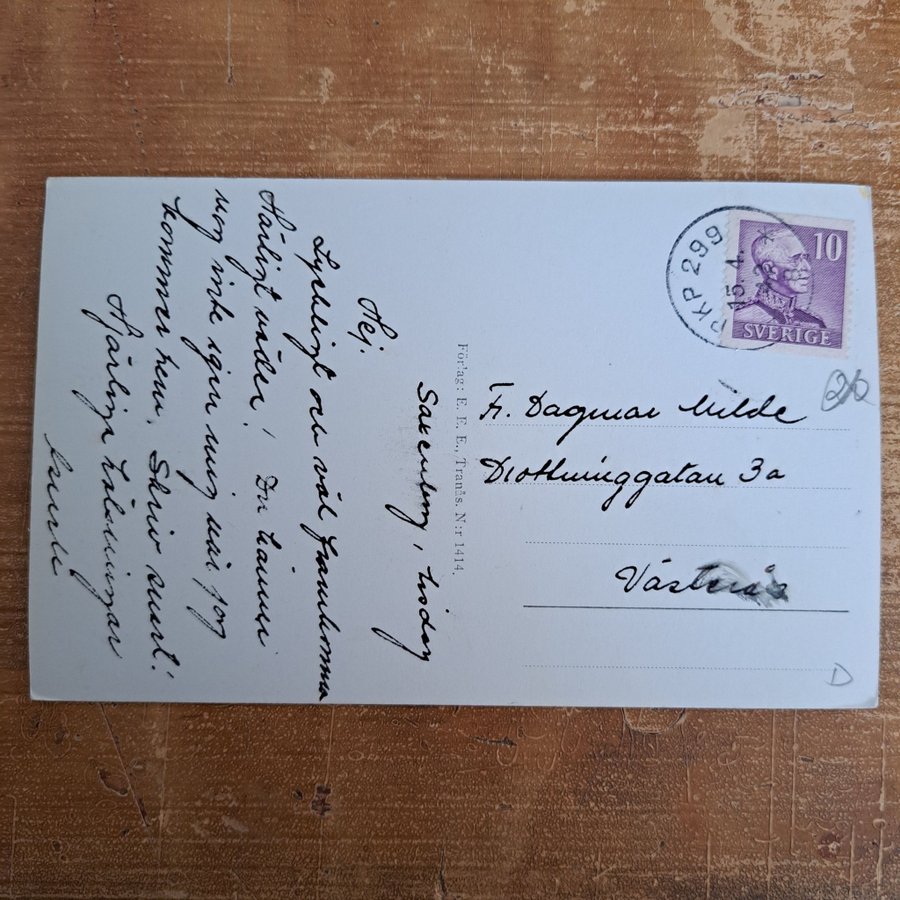 Saxenberg, tisdag
Hej.
Lyckligt och väl framkomna
Härligt väder! Du känner
nog inte igen mig när jag
kommer hem. Skriv snart.
Hjärtliga hälsningar
Förlag: E. F. E., Tranås. N:r 1414.
PKP 299
10
SVERIGE
Fr. Dagmar Milde
Drottninggatan 3a
Västerås
20
D